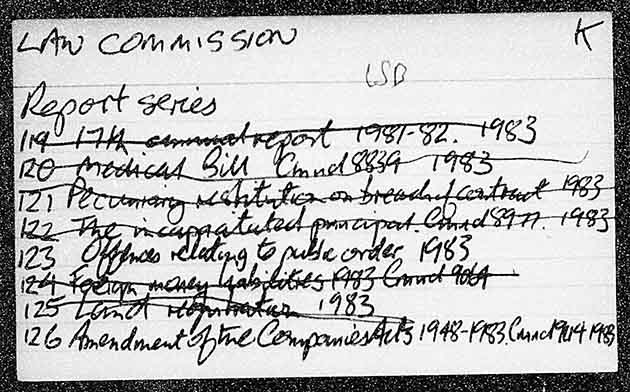 LAW COMMISSION K
LSB
Report series
119 17th annual report 1981-82. 1983
120 Medical Bill Cmnd 8839 1983
121 Pecuniary restitution on breach of contract 1983
122 The incapacitated principal. Cmnd 8977. 1983
123 Offences relating to public order 1983
124 Foreign money liabilities 1983 Cmnd 9064
125 Land registration 1983
126 Amendment of the Companies Acts 1948-1983. Cmnd 9114 1983